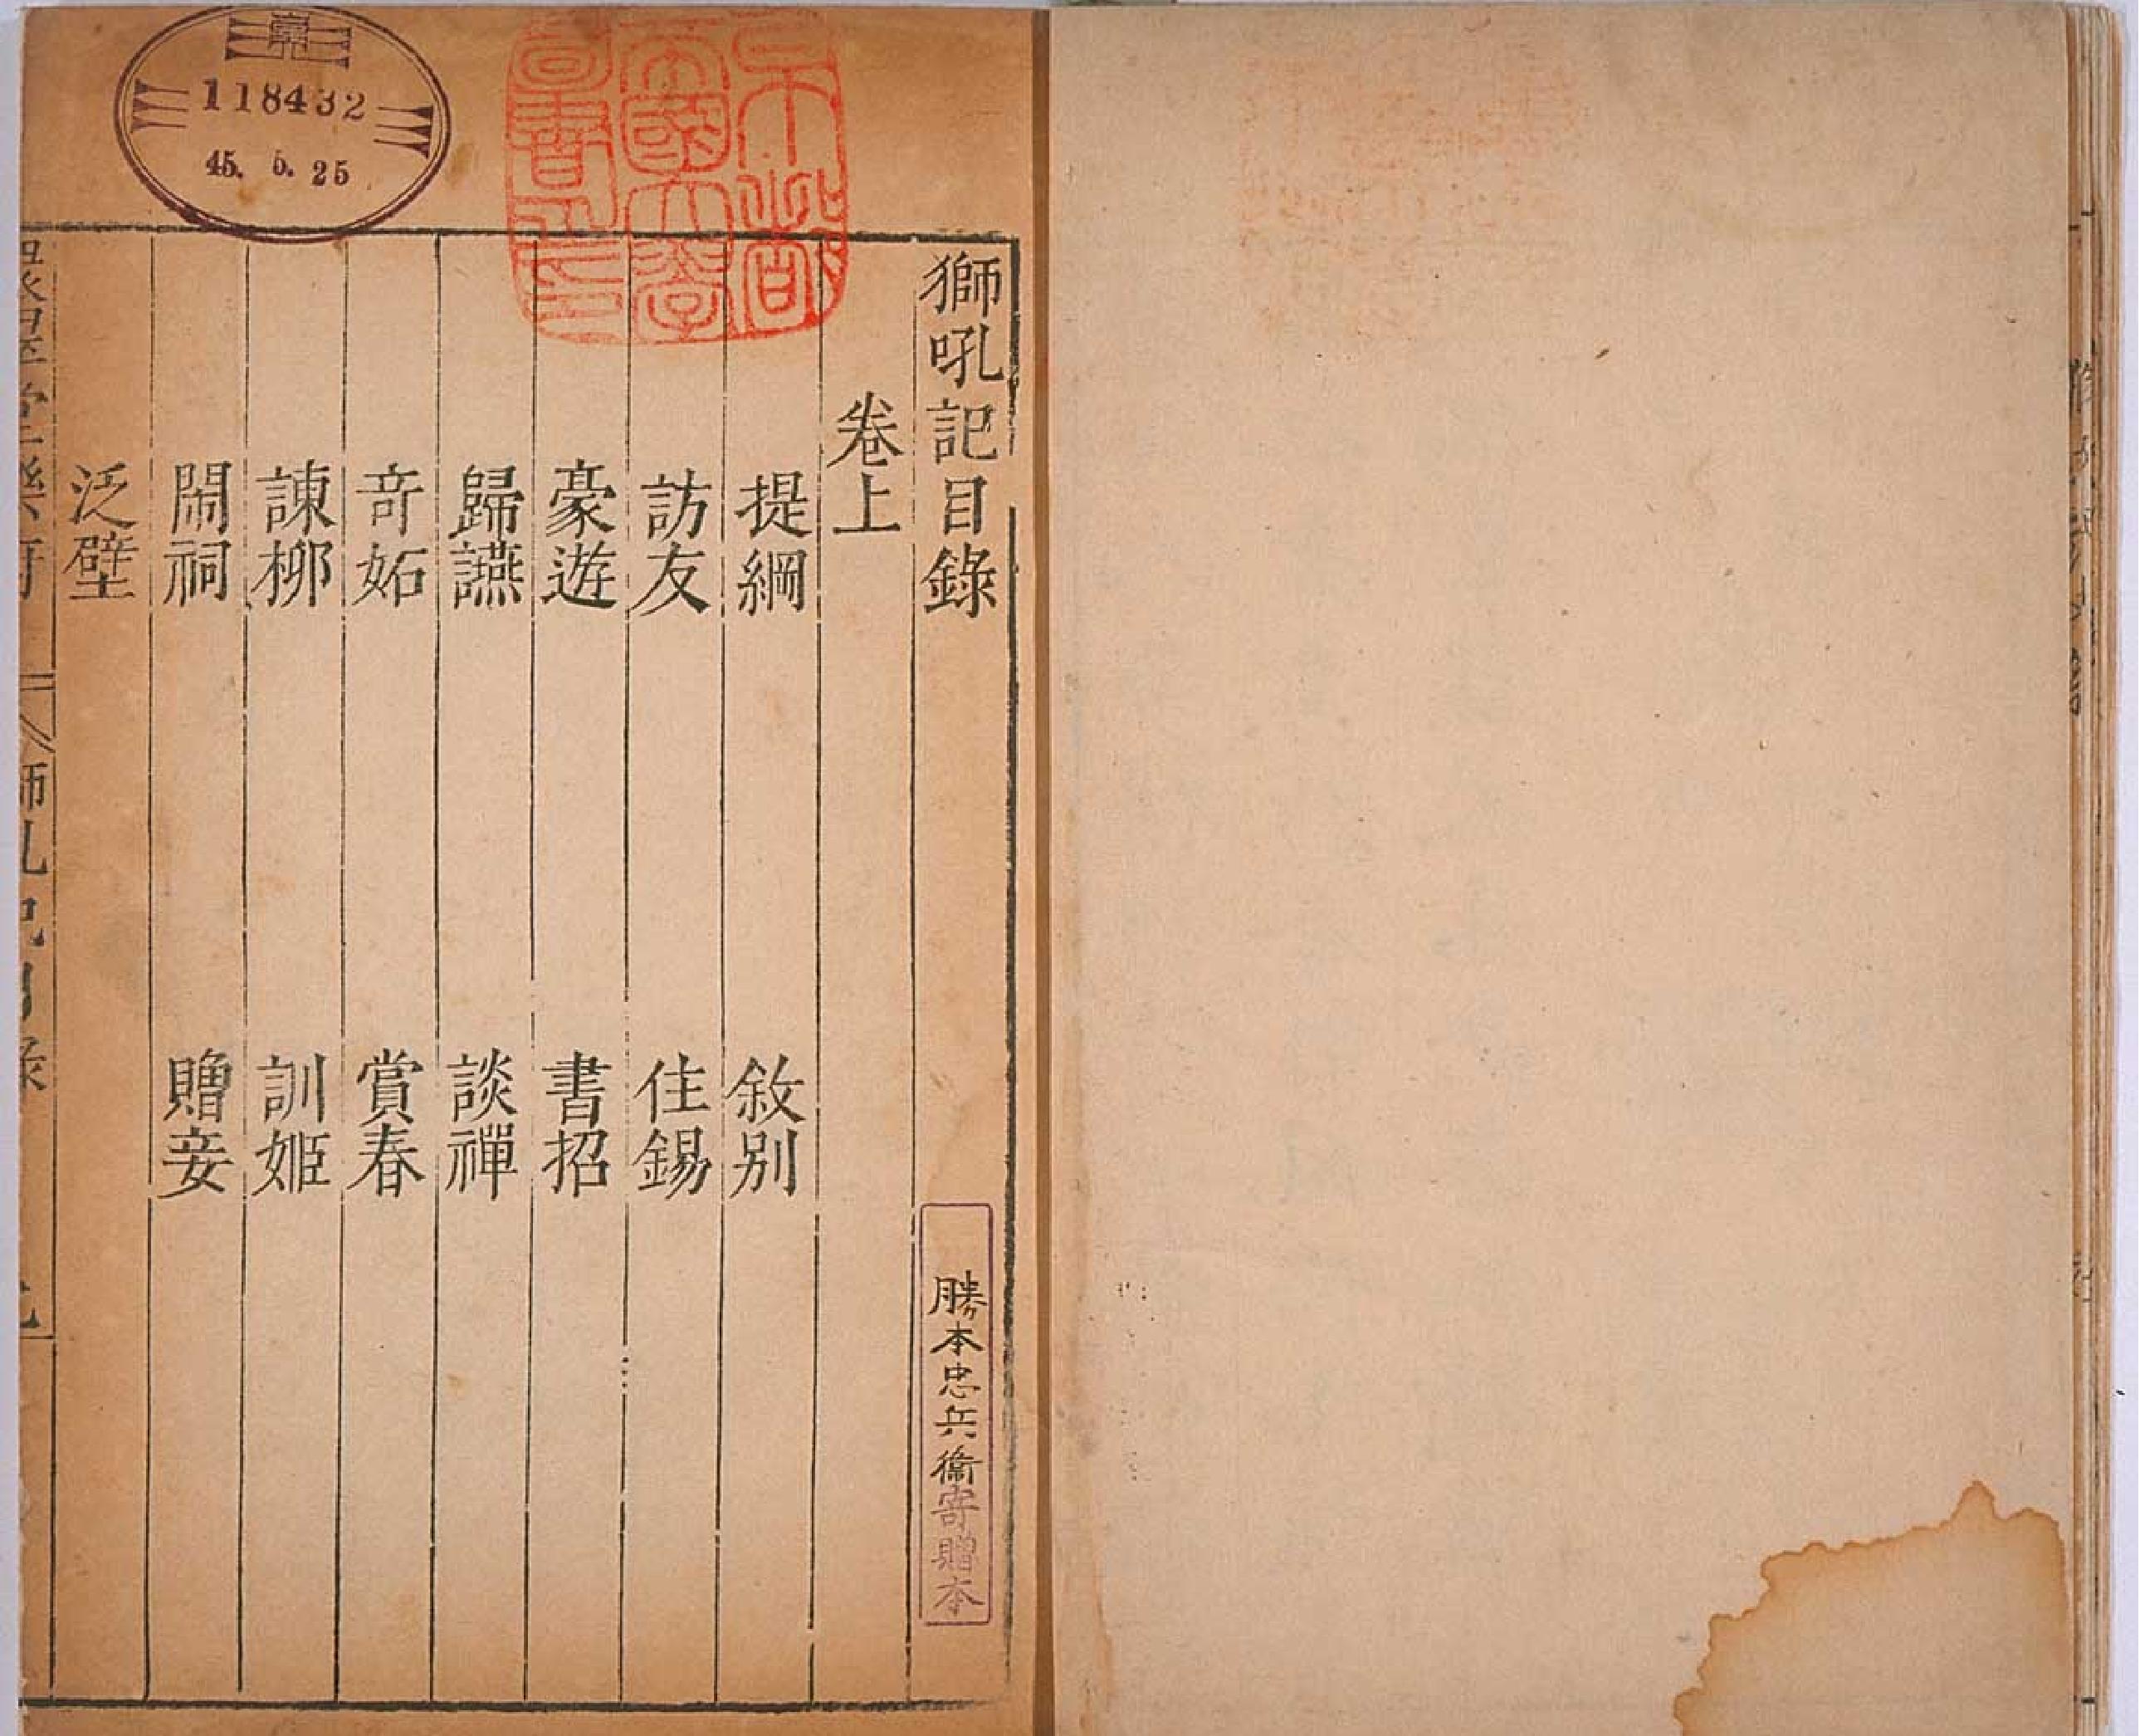 獅吼記目錄
卷上
提綱
敘別
訪友
住錫
豪遊
書招
歸讌
談禪
奇妬
賞春
諫柳
訓姬
鬧祠
贈妾
泛壁
勝本忠兵衞寄贈本
京都帝國大學圖書之印
118432
45. 5. 25
師吼記目錄